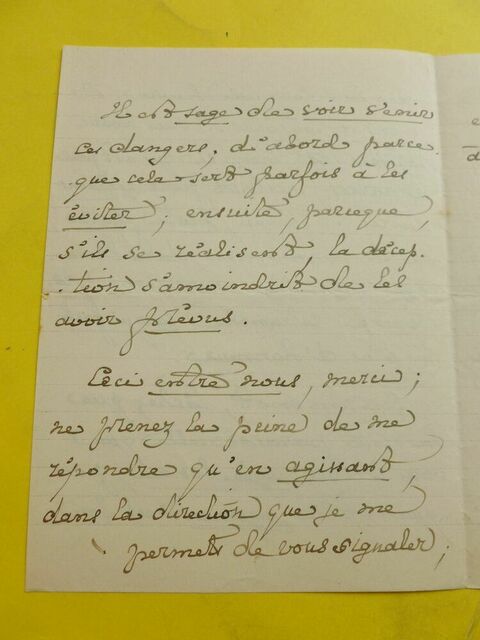 Il est sage de voir venir
ces dangers, d'abord parce
que cela sert parfois à les
éviter; ensuite, parceque,
s'ils se réalisent, la décep-
tion s'amoindrit de les
avoir prévus.
Ceci entre nous, merci;
ne prenez la peine de me
répondre qu'en agissant,
dans la direction que je me
permets de vous signaler;
e
d